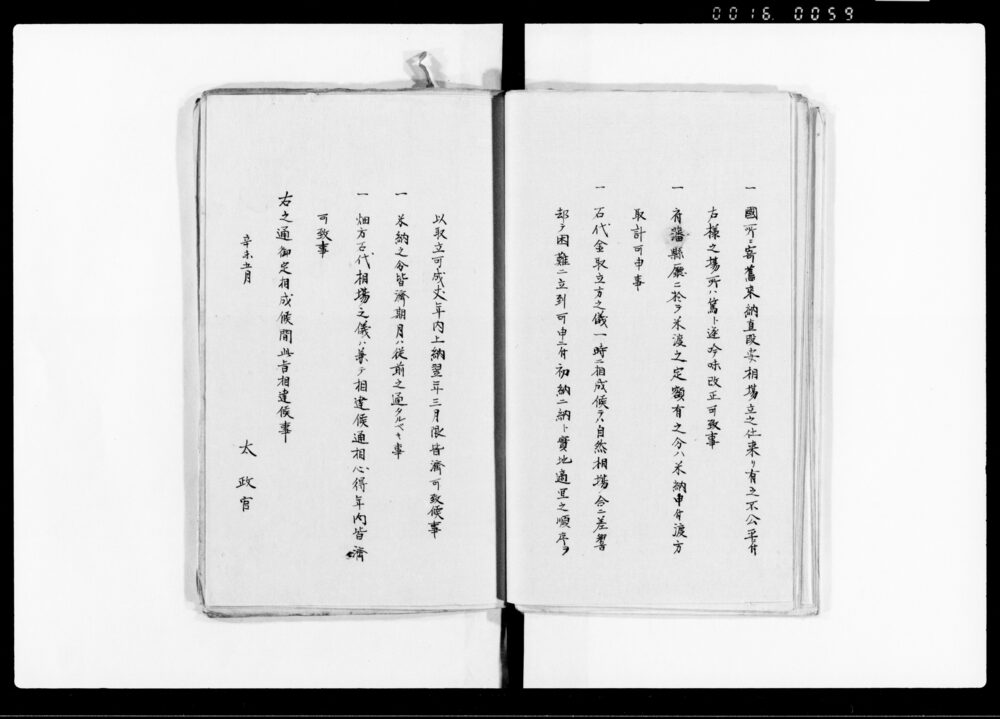 0016 0059
一 國所ニ寄舊来納直段安相場立之仕来リ有之不公平付
右様之場所ハ篤ト遂吟味改正可致事
一 府藩縣廳ニ於テ米渡之定額有之分ハ米納申付渡方
取計可申事
一 石代金取立方之儀一時ニ相成候テハ自然相場合ニ差響
却テ困難ニ立到可申ニ付初納二納ト實地適宜之順序ヲ
以取立可成丈年内上納翌年三月限皆濟可致候事
一 米納之分皆濟期月ハ従前之通タルベキ事
一 畑方石代相場之儀ハ兼テ相達候通相心得年内皆濟
可致事
右之通御定相成候間此旨相達候事
辛未五月
太政官